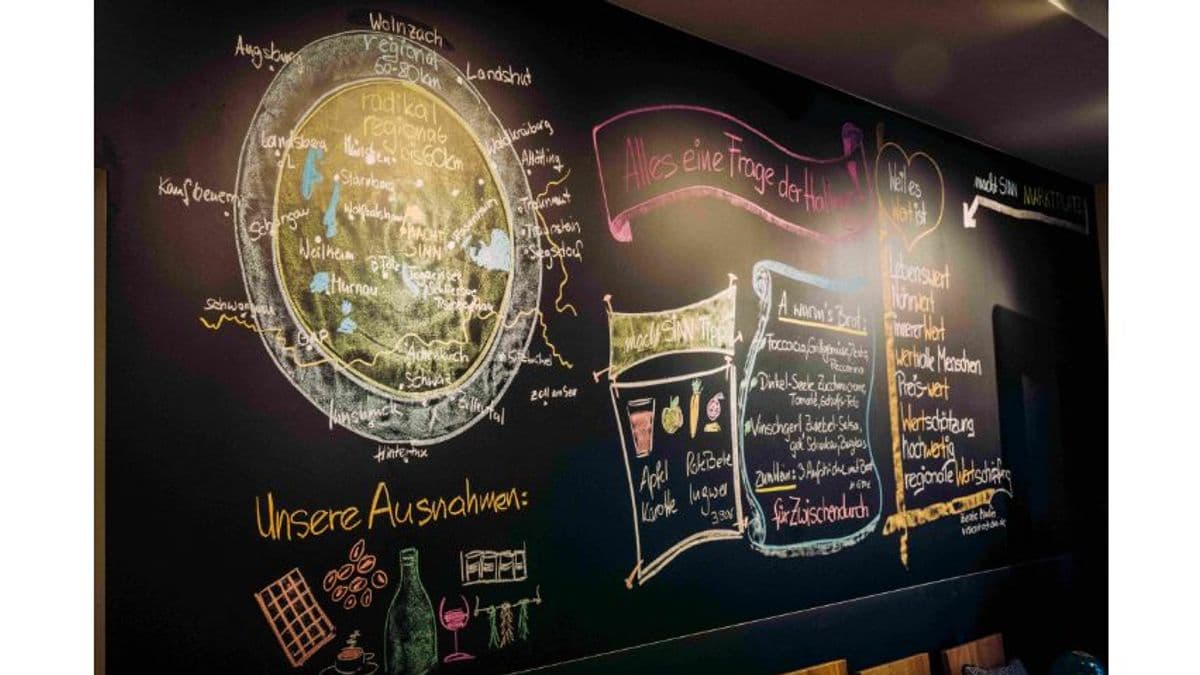 Wolnzach
Augsburg
regional
60-80km
Landshut
radikal
regional
bis 60km
Waldkraiburg
Landsberg
München
Altötting
Starnberg
Kaufbeuren
Traunreut
Schongau
Traunstein
Siegsdorf
Weilheim
MACHT
SINN
B.Tölz
Tegernsee
Schliersee
Murnau
Schwangau
GAP
Achenkirch
Schwaz
Kitzbühel
Innsbruck
Zillertal
Zell am See
Hintertux
Unsere Ausnahmen:
Alles eine Frage der Haltung
macht SINN Tipp
Apfel
Karotte
Rote Beete
Ingwer
3,90€
A warm's Brot:
Foccaccia, Grillgemüse, Pesto,
Peccorino
Dinkel-Seele, Zucchinicreme,
Tomate, Schafs-Feta
Vinschgerl, Zwiebel-Salsa,
Schinken, Bergkas
Zum Wein: 3 Aufstriche und Brot
für Zwischendurch
Weil es
Wert ist
macht SINN MARKTPLATZ
Lebenswert
Nährwert
innerer Wert
wertvolle Menschen
Preis-wert
Wertschätzung
hochwertig
regionale Wertschöpfung